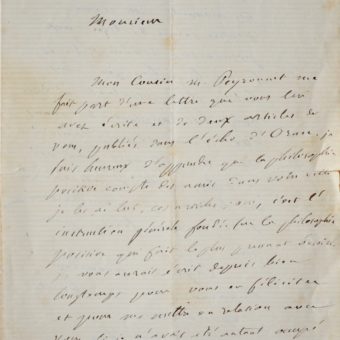 Monsieur
Mon Cousin M. Peyronnet me
fait part d'une lettre que vous lui
avez écrite et de deux articles de
vous, publiés dans l'écho d'Oran. je
suis heureux d'apprendre que la philosophie
positive compte des amis dans votre
je les ai lus, ces articles, c'est l'
instruction générale fondée sur la philosophie
positive qui fait le plus
je vous aurais écrit depuis bien
longtemps pour vous en féliciter
et pour me mettre en relation avec
vous si je n'avais été autant occupé